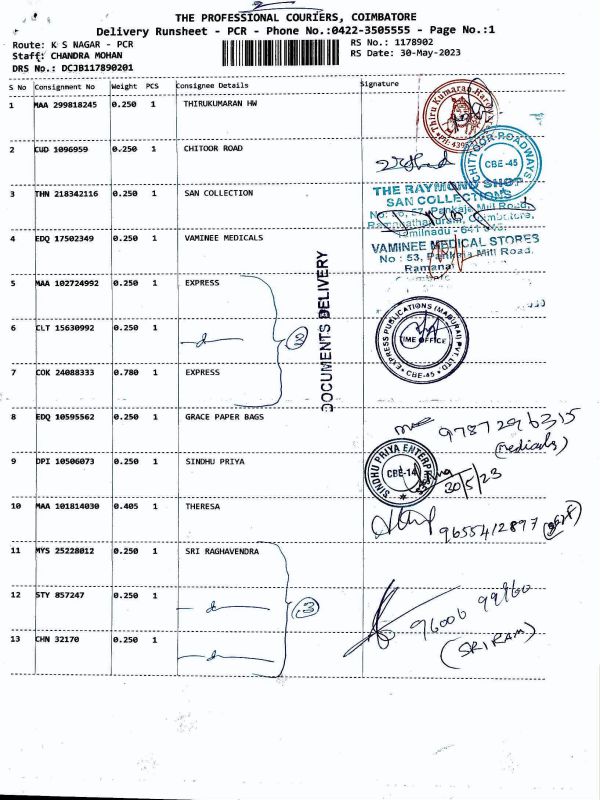 THE PROFESSIONAL COURIERS, COIMBATORE
Delivery Runsheet - PCR - Phone No.:0422-3505555 - Page No.:1
Route: K S NAGAR - PCR
RS No.: 1178902
Staff: CHANDRA MOHAN
RS Date: 30-May-2023
DRS No.: DCJB117890201
S No Consignment No Weight PCS Consignee Details Signature
1 MAA 299818245 0.250 1 THIRUKUMARAN HW
Thiru Kumaran Hardwa
2 CUD 1096959 0.250 1 CHITOOR ROAD
CHITTOOR ROADWAYS
CBE-45
3 THN 218342116 0.250 1 SAN COLLECTION
THE RAYMOND SHOP
SAN COLLECTIONS
Pankaja Mill Road,
Ramanathapuram, Coimbatore,
Tamilnadu - 641 045.
4 EDQ 17502349 0.250 1 VAMINEE MEDICALS
VAMINEE MEDICAL STORES
No : 53, Pankaja Mill Road,
Ramanat
5 MAA 102724992 0.250 1 EXPRESS
6 CLT 15630992 0.250 1
7 COK 24088333 0.780 1 EXPRESS
EXPRESS PUBLICATIONS (MADURAI) PVT. LTD
TIME OFFICE
CBE-45
DOCUMENTS DELIVERY
8 EDQ 10595562 0.250 1 GRACE PAPER BAGS
9787296315
(medicals)
9 DPI 10506073 0.250 1 SINDHU PRIYA
SINDHU PRIYA ENTERPRISES
CBE-14
30/5/23
10 MAA 101814030 0.405 1 THERESA
9655412897
11 MYS 25228012 0.250 1 SRI RAGHAVENDRA
3
12 STY 857247 0.250 1
96006 99960
13 CHN 32170 0.250 1
(SRIRAM)